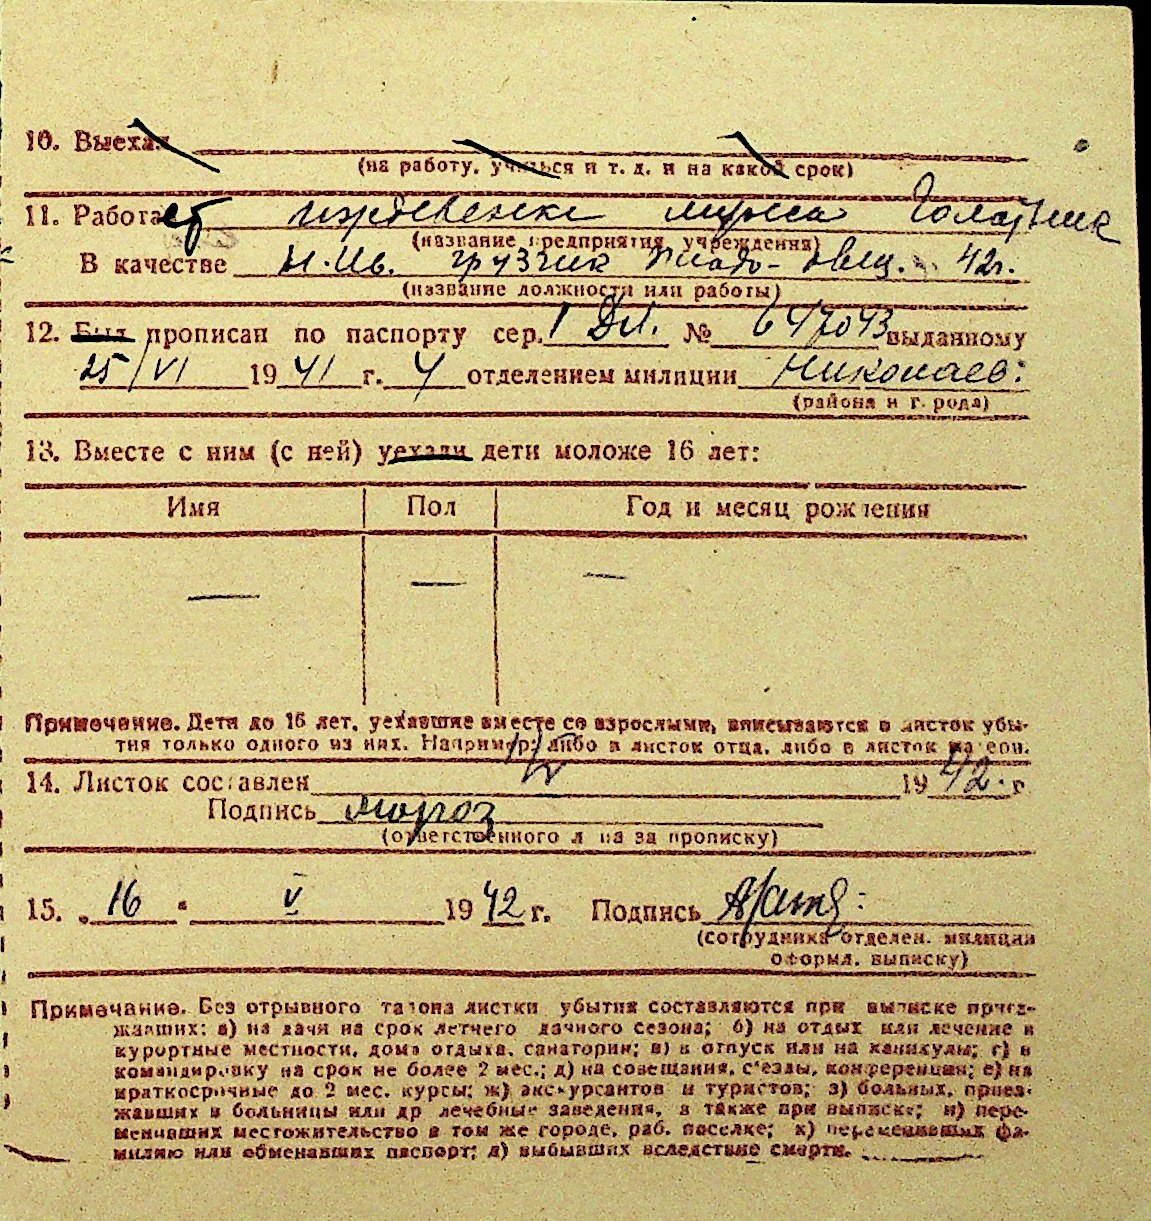 10. Выехал
(на работу, учиться и т. д. и на какой срок)
11. Работает
(название предприятия, учреждения)
В качестве грузчик 42г.
(название должности или работы)
12. Был прописан по паспорту сер. I № 647043 выданному
25/VI 1941 г. 4 отделением милиции Николаев:
(района и города)
13. Вместе с ним (с ней) уехали дети моложе 16 лет:
Имя Пол Год и месяц рождения
— — —
Примечание. Дети до 16 лет, уехавшие вместе со взрослыми, вписываются в листок убы-
тия только одного из них. Например: либо в листок отца, либо в листок матери.
14. Листок составлен V 1942. г
Подпись Мороз
(ответственного лица за прописку)
15. „16" V 1942 г. Подпись
(сотрудника отделен. милиции
оформл. выписку)
Примечание. Без отрывного талона листки убытия составляются при выписке приез-
жавших: а) на дачи на срок летнего дачного сезона; б) на отдых или лечение в
курортные местности, дома отдыха, санатории; в) в отпуск или на каникулы; г) в
командировку на срок не более 2 мес.; д) на совещания, с'езды, конференции; е) на
краткосрочные до 2 мес. курсы; ж) экскурсантов и туристов; з) больных, приез-
жавших в больницы или др лечебные заведения, а также при выписке; и) пере-
менивших местожительство в том же городе, раб. поселке; к) переменивших фа-
милию или обменавших паспорт; л) выбывших вследствие смерти.